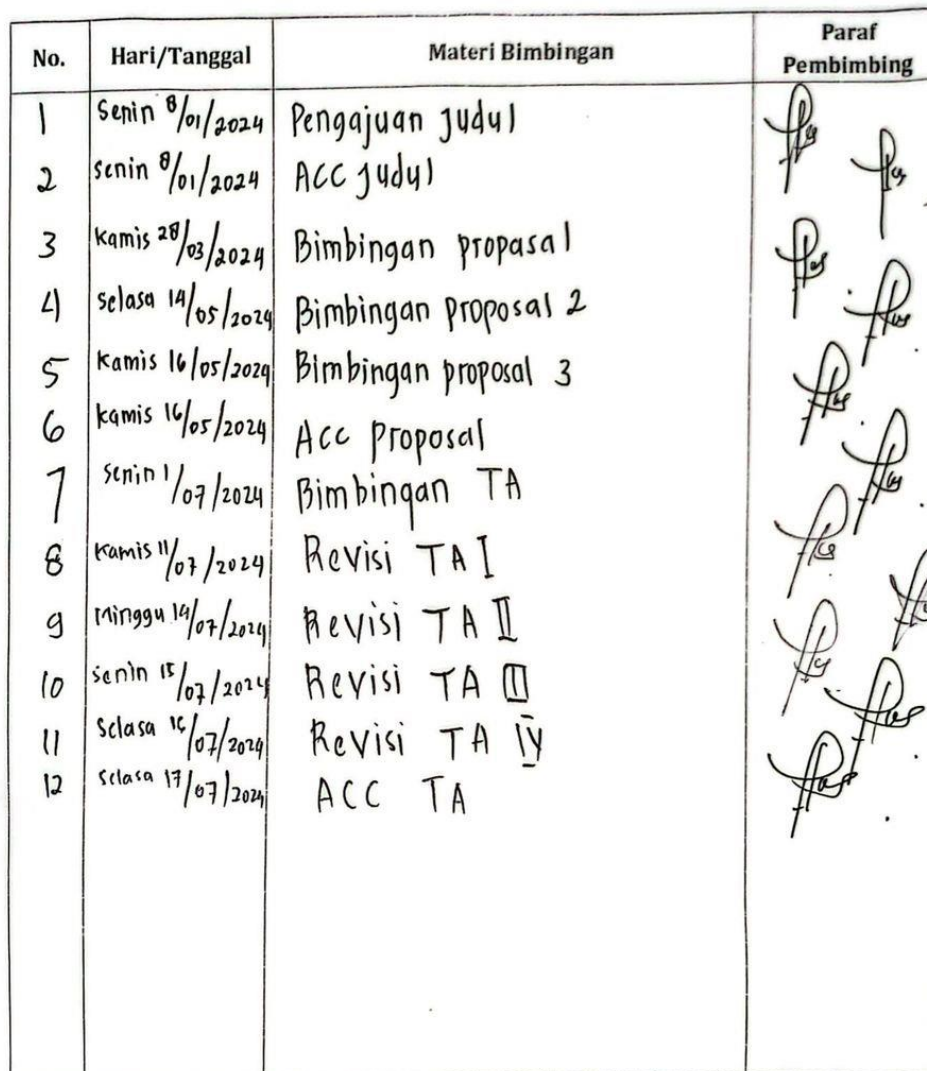 No. Hari/Tanggal Materi Bimbingan Paraf Pembimbing
1 Senin 8/01/2024 Pengajuan Judul
2 Senin 8/01/2024 ACC Judul
3 Kamis 28/03/2024 Bimbingan propasal
4 Selasa 14/05/2024 Bimbingan proposal 2
5 Kamis 16/05/2024 Bimbingan proposal 3
6 Kamis 16/05/2024 Acc proposal
7 Senin 1/07/2024 Bimbingan TA
8 Kamis 11/07/2024 Revisi TA I
9 Minggu 14/07/2024 Revisi TA II
10 Senin 15/07/2024 Revisi TA III
11 Selasa 16/07/2024 Revisi TA IV
12 Selasa 17/07/2024 ACC TA